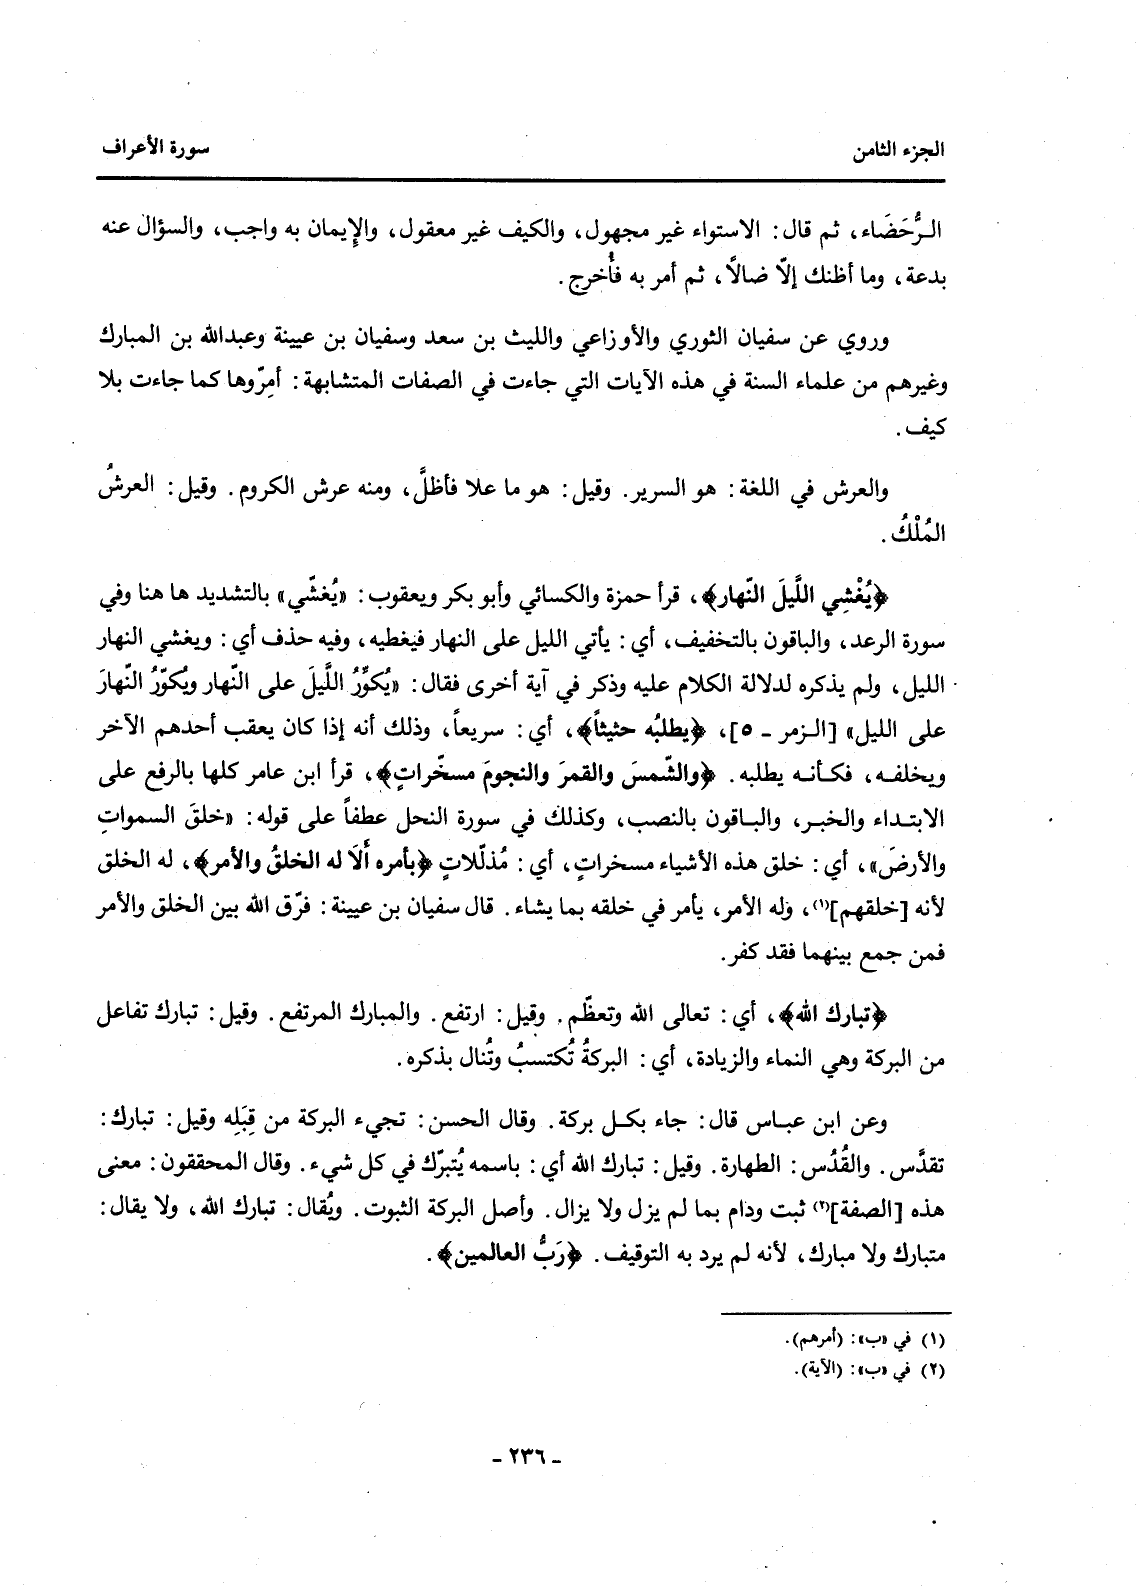 الجزء الثامن
سورة الأعراف
الـرُّحَضَاء، ثم قال: الاستواء غير مجهول، والكيف غير معقول، والإيمان به واجب، والسؤال عنه
بدعة، وما أظنك إلّا ضالاً، ثم أمر به فأُخرج.
وروي عن سفيان الثوري والأوزاعي والليث بن سعد وسفيان بن عيينة وعبدالله بن المبارك
وغيرهم من علماء السنة في هذه الآيات التي جاءت في الصفات المتشابهة: أمِرّوها كما جاءت بلا
كيف.
والعرش في اللغة: هو السرير. وقيل: هو ما علا فأظلَّ، ومنه عرش الكروم. وقيل: العرشُ
المُلْكُ.
﴿يُغْشِي اللَّيلَ النّهار﴾، قرأ حمزة والكسائي وأبو بكر ويعقوب: «يُغشّي» بالتشديد ها هنا وفي
سورة الرعد، والباقون بالتخفيف، أي: يأتي الليل على النهار فيغطيه، وفيه حذف أي: ويغشي النهار
الليل، ولم يذكره لدلالة الكلام عليه وذكر في آية أخرى فقال: «يُكوِّرُ اللَّيلَ على النّهار ويُكوّرُ النّهارَ
على الليل» [الـزمر ـ ٥]، ﴿يطلبُه حثيثاً﴾، أي: سريعاً، وذلك أنه إذا كان يعقب أحدهم الآخر
ويخلفـه، فكـأنـه يطلبه. ﴿والشّمسَ والقمرَ والنجومَ مسخّراتٍ﴾، قرأ ابن عامر كلها بالرفع على
الابتـداء والخبـر، والبـاقون بالنصب، وكذلك في سورة النحل عطفاً على قوله: «خلقَ السمواتِ
والأرضَ»، أي: خلق هذه الأشياء مسخراتٍ، أي: مُذلّلاتٍ ﴿بأمره أَلَا له الخلقُ والأمر﴾، له الخلق
لأنه [خلقهم](١)، وله الأمر، يأمر في خلقه بما يشاء. قال سفيان بن عيينة: فرّق الله بين الخلق والأمر
فمن جمع بينهما فقد كفر.
﴿تبارك الله﴾، أي: تعالى الله وتعظّم. وقيل: ارتفع. والمبارك المرتفع. وقيل: تبارك تفاعل
من البركة وهي النماء والزيادة، أي: البركةُ تُكتسبُ وتُنال بذكره.
وعن ابن عبـاس قال: جاء بكـل بركة. وقال الحسن: تجيء البركة من قِبَلِه وقيل: تبارك:
تقدَّس. والقُدُس: الطهارة. وقيل: تبارك الله أي: باسمه يُتبرّك في كل شيء. وقال المحققون: معنى
هذه [الصفة](٢) ثبت ودام بما لم يزل ولا يزال. وأصل البركة الثبوت. ويُقال: تبارك الله، ولا يقال:
متبارك ولا مبارك، لأنه لم يرد به التوقيف. ﴿رَبُّ العالمين﴾.
(١) في «ب»: (أمرهم).
(٢) في «ب»: (الآية).
ـ ٢٣٦ ـ